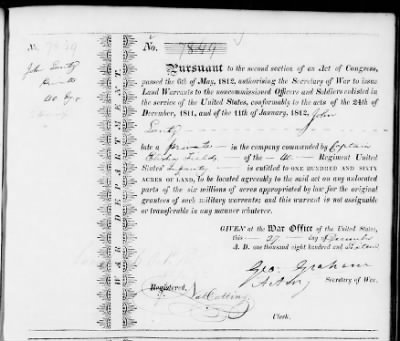 No. 7849
No. 7849
John
Private
PURSUANT to the second section of an Act of Congress,
passed the 6th of May, 1812, authorising the Secretary of War to issue
Land Warrants to the noncommissioned Officers and Soldiers enlisted in
the service of the United States, conformably to the acts of the 24th of
December, 1811, and of the 11th of January, 1812, John
late a private in the company commanded by Captain
Fields of the Regiment United
States' Infantry is entitled to ONE HUNDRED AND SIXTY
ACRES OF LAND, to be located agreeably to the said act on any unlocated
parts of the six millions of acres appropriated by law for the original
grantees of such military warrants; and this warrant is not assignable
or transferable in any manner whatever.
GIVEN at the War Office of the United States,
this 27 day December
A. D. one thousand eight hundred and sixteen
Geo. Graham
Actg Secretary of War.
Registered,
Clerk.
WAR DEPARTMENT.